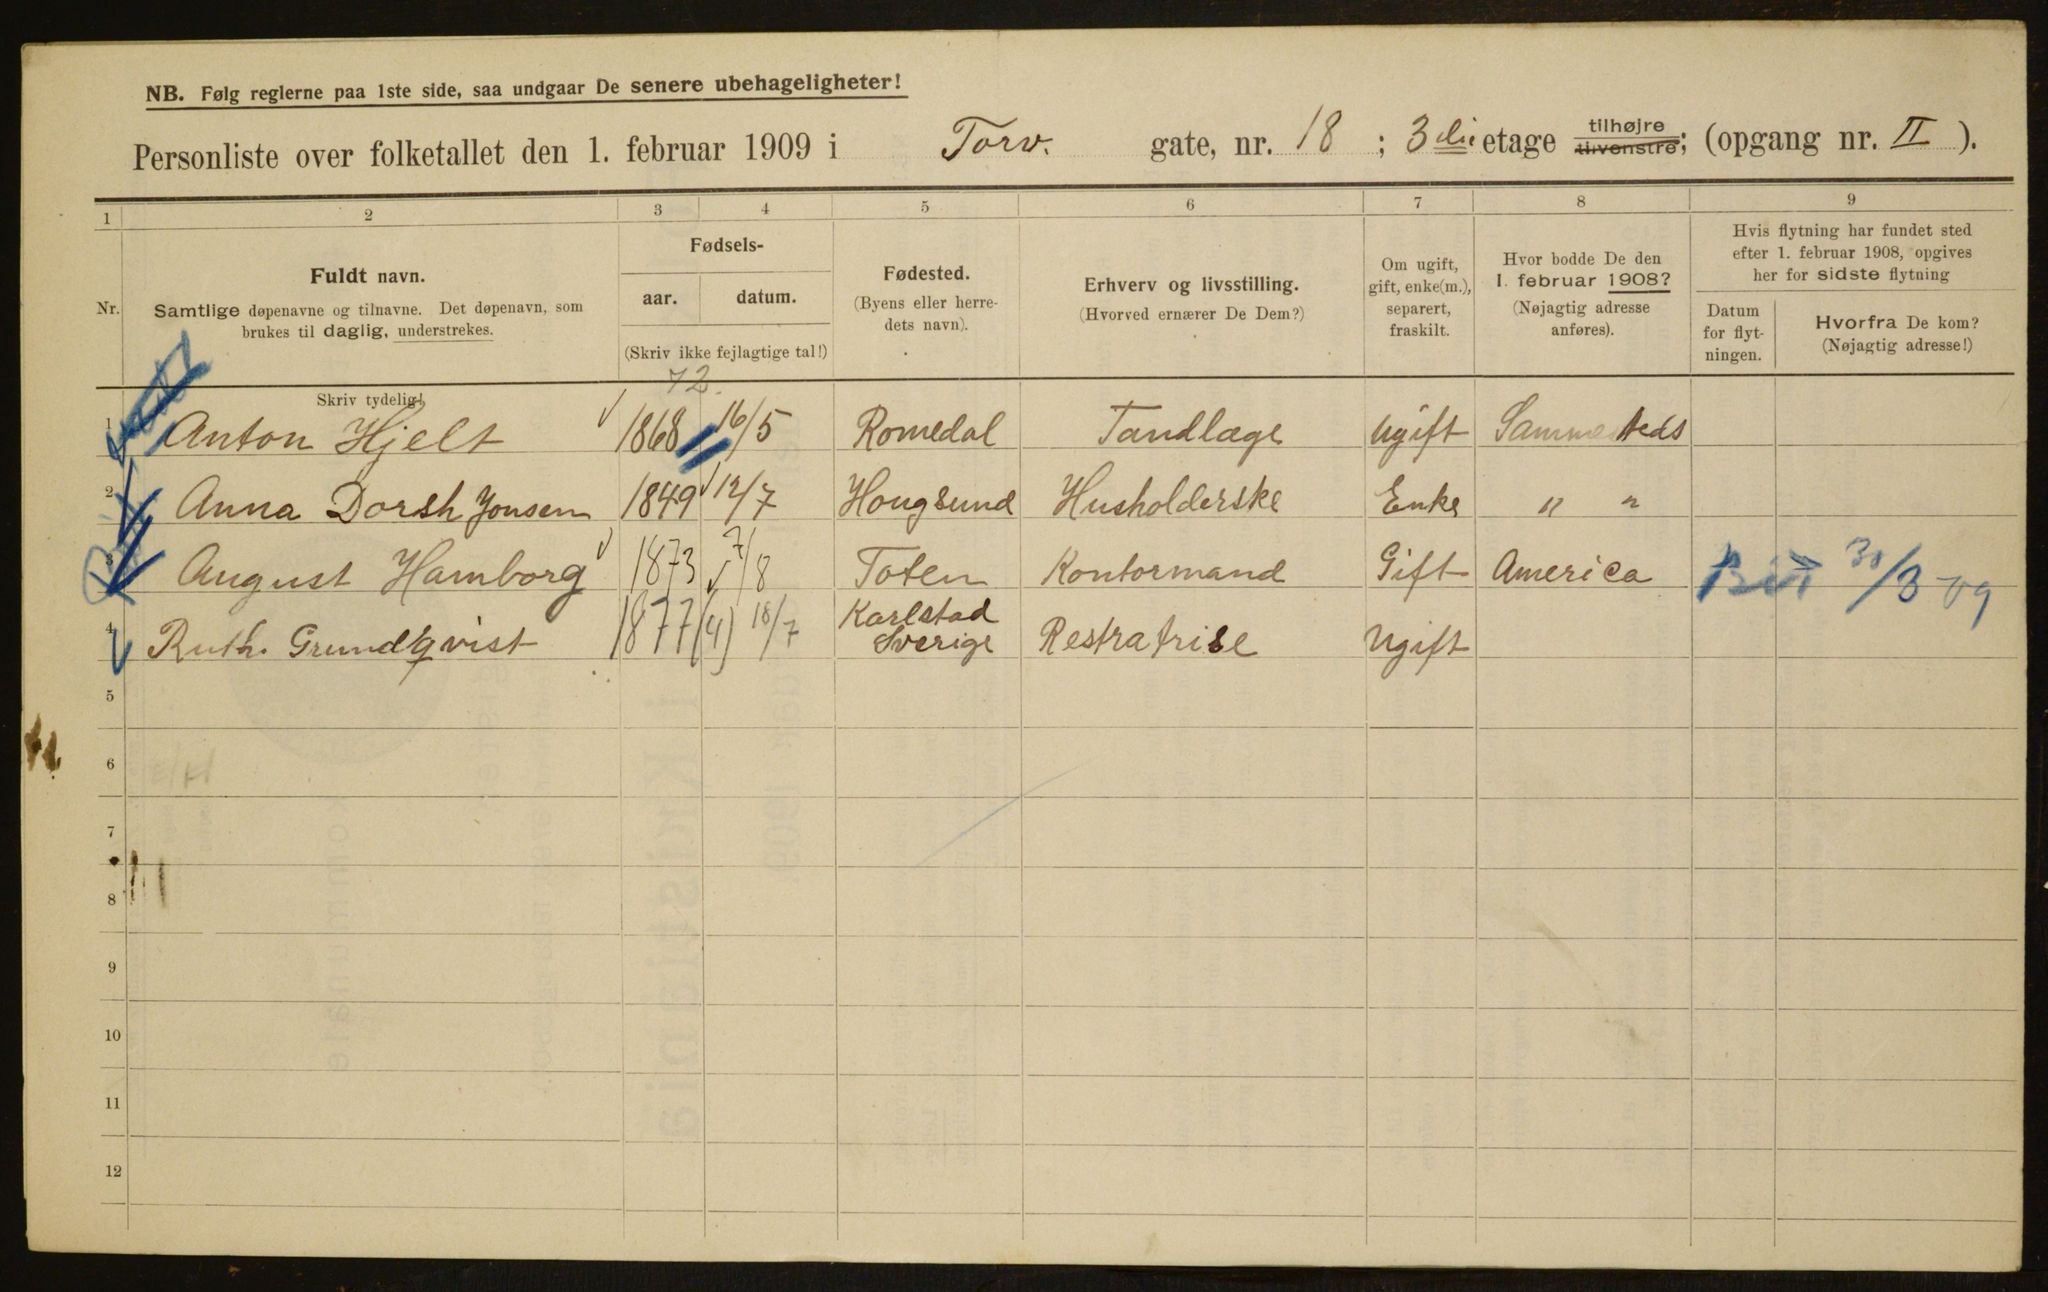 NB. Følg reglerne paa 1ste side, saa undgaar De senere ubehageligheter!
Personliste over folketallet den 1. februar 1909 i Torv. gate, nr. 18 ; 3die etage tilhøjre tilvenstre; (opgang nr. II ).
1 2 3 4 5 6 7 8 9
Nr.
Fuldt navn.
Samtlige døpenavne og tilnavne. Det døpenavn, som
brukes til daglig, understrekes.
Fødsels-
aar. datum.
(Skriv ikke fejlagtige tal!)
Fødested.
(Byens eller herre-
dets navn).
Erhverv og livsstilling.
(Hvorved ernærer De Dem?)
Om ugift,
gift, enke(m.),
separert,
fraskilt.
Hvor bodde De den
1. februar 1908?
(Nøjagtig adresse
anføres).
Hvis flytning har fundet sted
efter 1. februar 1908, opgives
her for sidste flytning
Datum
for flyt-
ningen.
Hvorfra De kom?
(Nøjagtig adresse!)
Skriv tydelig!
72.
1 Anton Hjelt 1868 16/5 Romedal Tandlæge Ugift Sammesteds
2 Anna Dorsh Jonsen 1849 12/7 Hougsund Husholderske Enke " "
3 August Hamborg 1873 7/8 Toten Kontormand Gift America 30/3-09
4 Ruth. Grundqvist 1877 (4) 18/7 Karlstad Sverige Restratrise Ugift
5
6
7
8
9
10
11
12